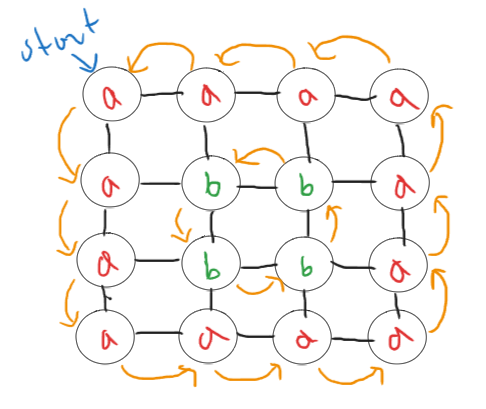 start
a a a a
a b b a
a b b a
a a a a